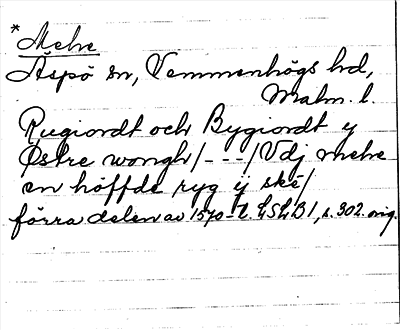 *Mehe
Äspö sn, Vemmenhögs hd,
Malm. l.
Rugiordt och Bygiordt y
Østre wongh/---/Vdj mehe
en höffde ryg ij ské/
förra delen av 1570-t. LSLB1, s. 302. orig.